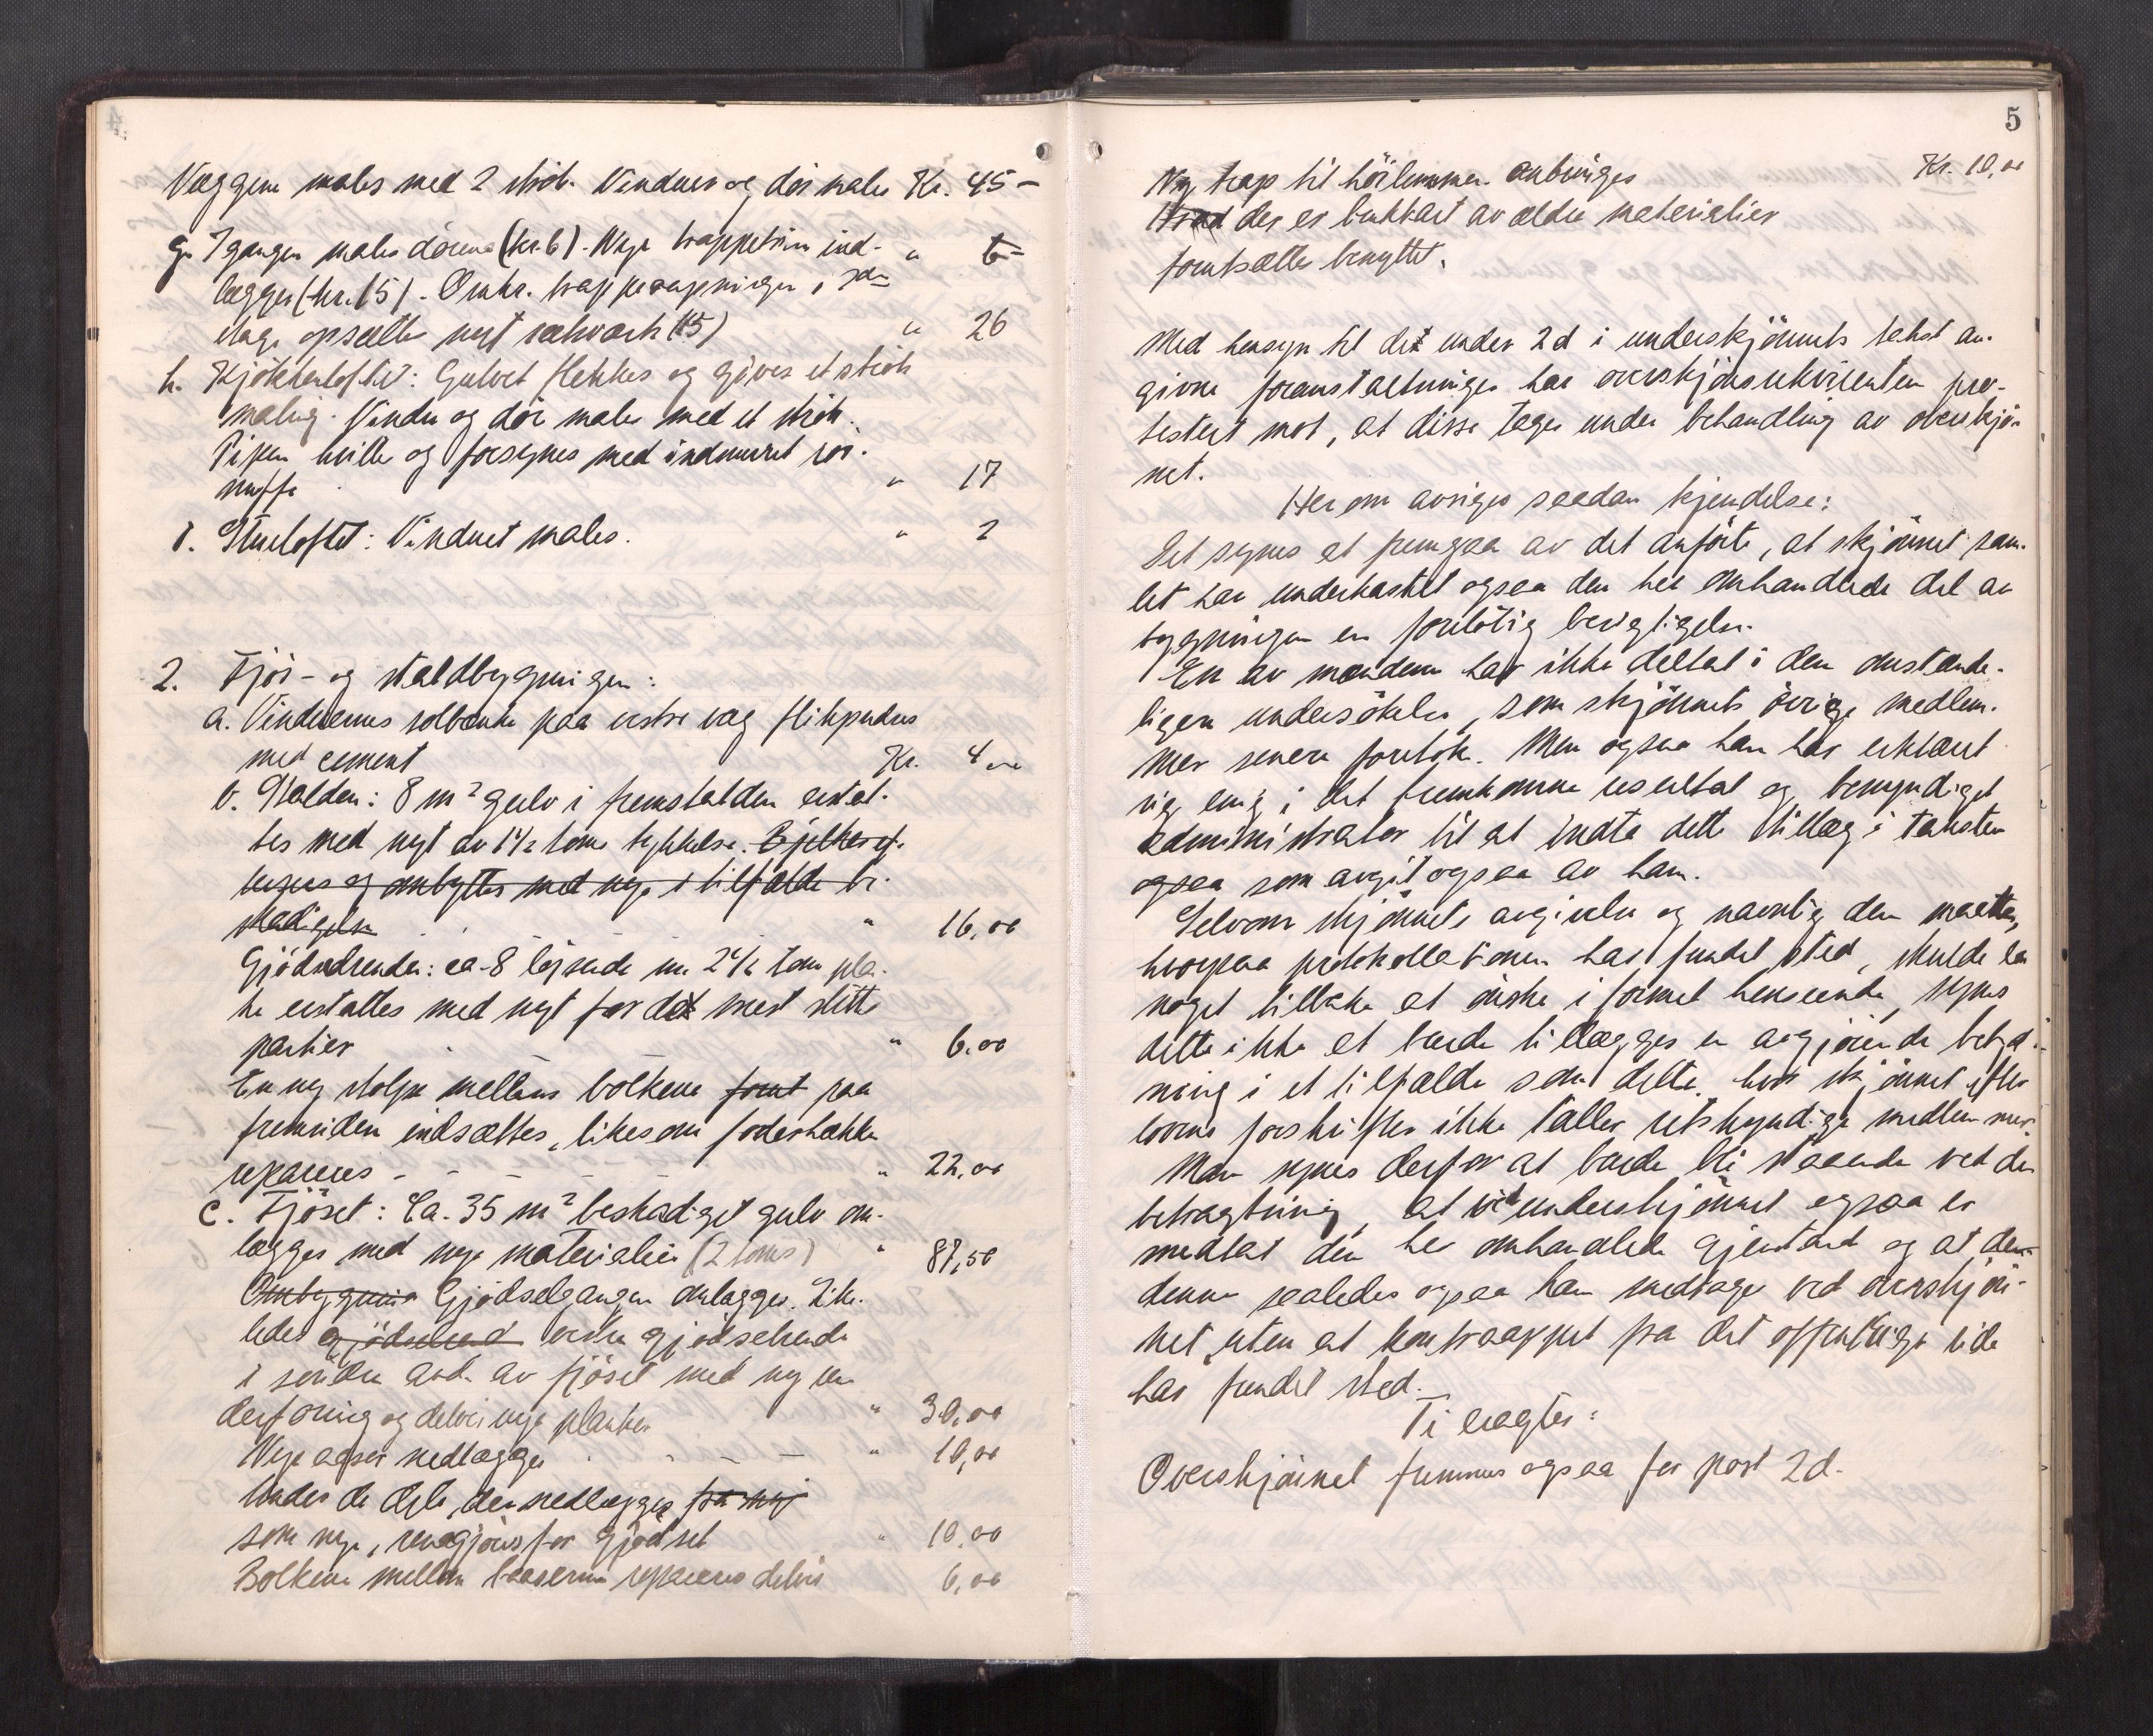 Væggene males med 2 strök. Vinduer og dör males Kr. 45 –
g. I gangen males dörene (kr. 6). Nye trappetrin ind- " 6 –
lægges (kr. 15). Omkr. trappeaapningen i
etage opsættes nyt rækverk (15) " 26
h. Kjökkenloftet: Gulvet flekkes og gives et strök
maling. Vindu og dör males med et strök.
Pipen hvittes og forsynes med indmuret rör-
muffe " 17
i. Stueloftet: Vinduet males. " 2
2. Fjös- og staldbygningen:
a. Vinduernes solbænke paa vestre væg flikpudses
med cement Kr. 4,00
b. Stalden: 8 m² gulv i fremstalden erstat-
tes med nyt av 1½ toms tykkelse. Bjelker ef-
terses og ombyttes med nye i tilfælde be-
skadigelse " 16,00
Gjödselrenden: ca. 8 löpende m 2½ tom plan-
ke erstattes med nyt for det mest slitte
partier " 6,00
En ny stolpe mellem bolkene fornt paa
fremsiden indsættes, likesom foderhække
repareres - - - - " 22,00
c. Fjöset: Ca. 35 m² beskadiget gulv om-
lægges med nye materialier (2 toms) " 87,50
Ombygning Gjödselgangen omlægges. Like-
ledes gjödselrend vestre gjödselrende
i söndre ende av fjöset med ny un-
derforing og delvis nye planker " 30,00
Nye aaser nedlægges - - - " 10,00
Under de dele, der nedlægges paa ny
som nye, rengjöres for gjödsel " 10,00
Bolkene mellem baasene repareres delvis 6,00
5
Ny trap til höilemmen anbringes Kr. 10,00
Hvad der er brukbart av ældre materialier
forutsættes benyttet.
Med hensyn til det under 2d i underskjönnets tekst an-
givne foranstaltninger har overskjönsrekvirenten pro-
testert mot, at disse tages under behandling av overskjön-
net.
Herom avsiges saadan kjendelse:
Det synes at fremgaa av det anförte, at skjönnet sam-
let har underkastet ogsaa den her omhandlede del av
bygningen en forelöbig besigtigelse.
En av mændene har ikke deltat i den omstænde-
ligere undersökelse, som skjönnets övrige medlem-
mer senere foretok. Men ogsaa han har erklært
sig enig i det fremkomne resultat og bemyndiget
administrator til at indta dette tillæg i taksten
ogsaa som avgit ogsaa av ham.
Selvom skjönnets avgivelse og navnlig den maate,
hvorpaa protokollationen har fundet sted, skulde la
noget tilbake at önske i formel henseende, synes
dette ikke at burde tillægges en avgjörende betyd-
ning i et tilfælde som dette, hvor skjönnet efter
lovens forskrifter ikke tæller retskyndige medlemmer.
Man synes derfor at burde bli staaende ved den
betragtning, at ved underskjönnet ogsaa er
medtat den her omhandlede gjenstand og at den
denne saaledes ogsaa kan medtages ved overskjön-
net, uten at fra det offentliges side
har fundet sted.
Ti eragtes:
Overskjönnet fremmes ogsaa for post 2d.